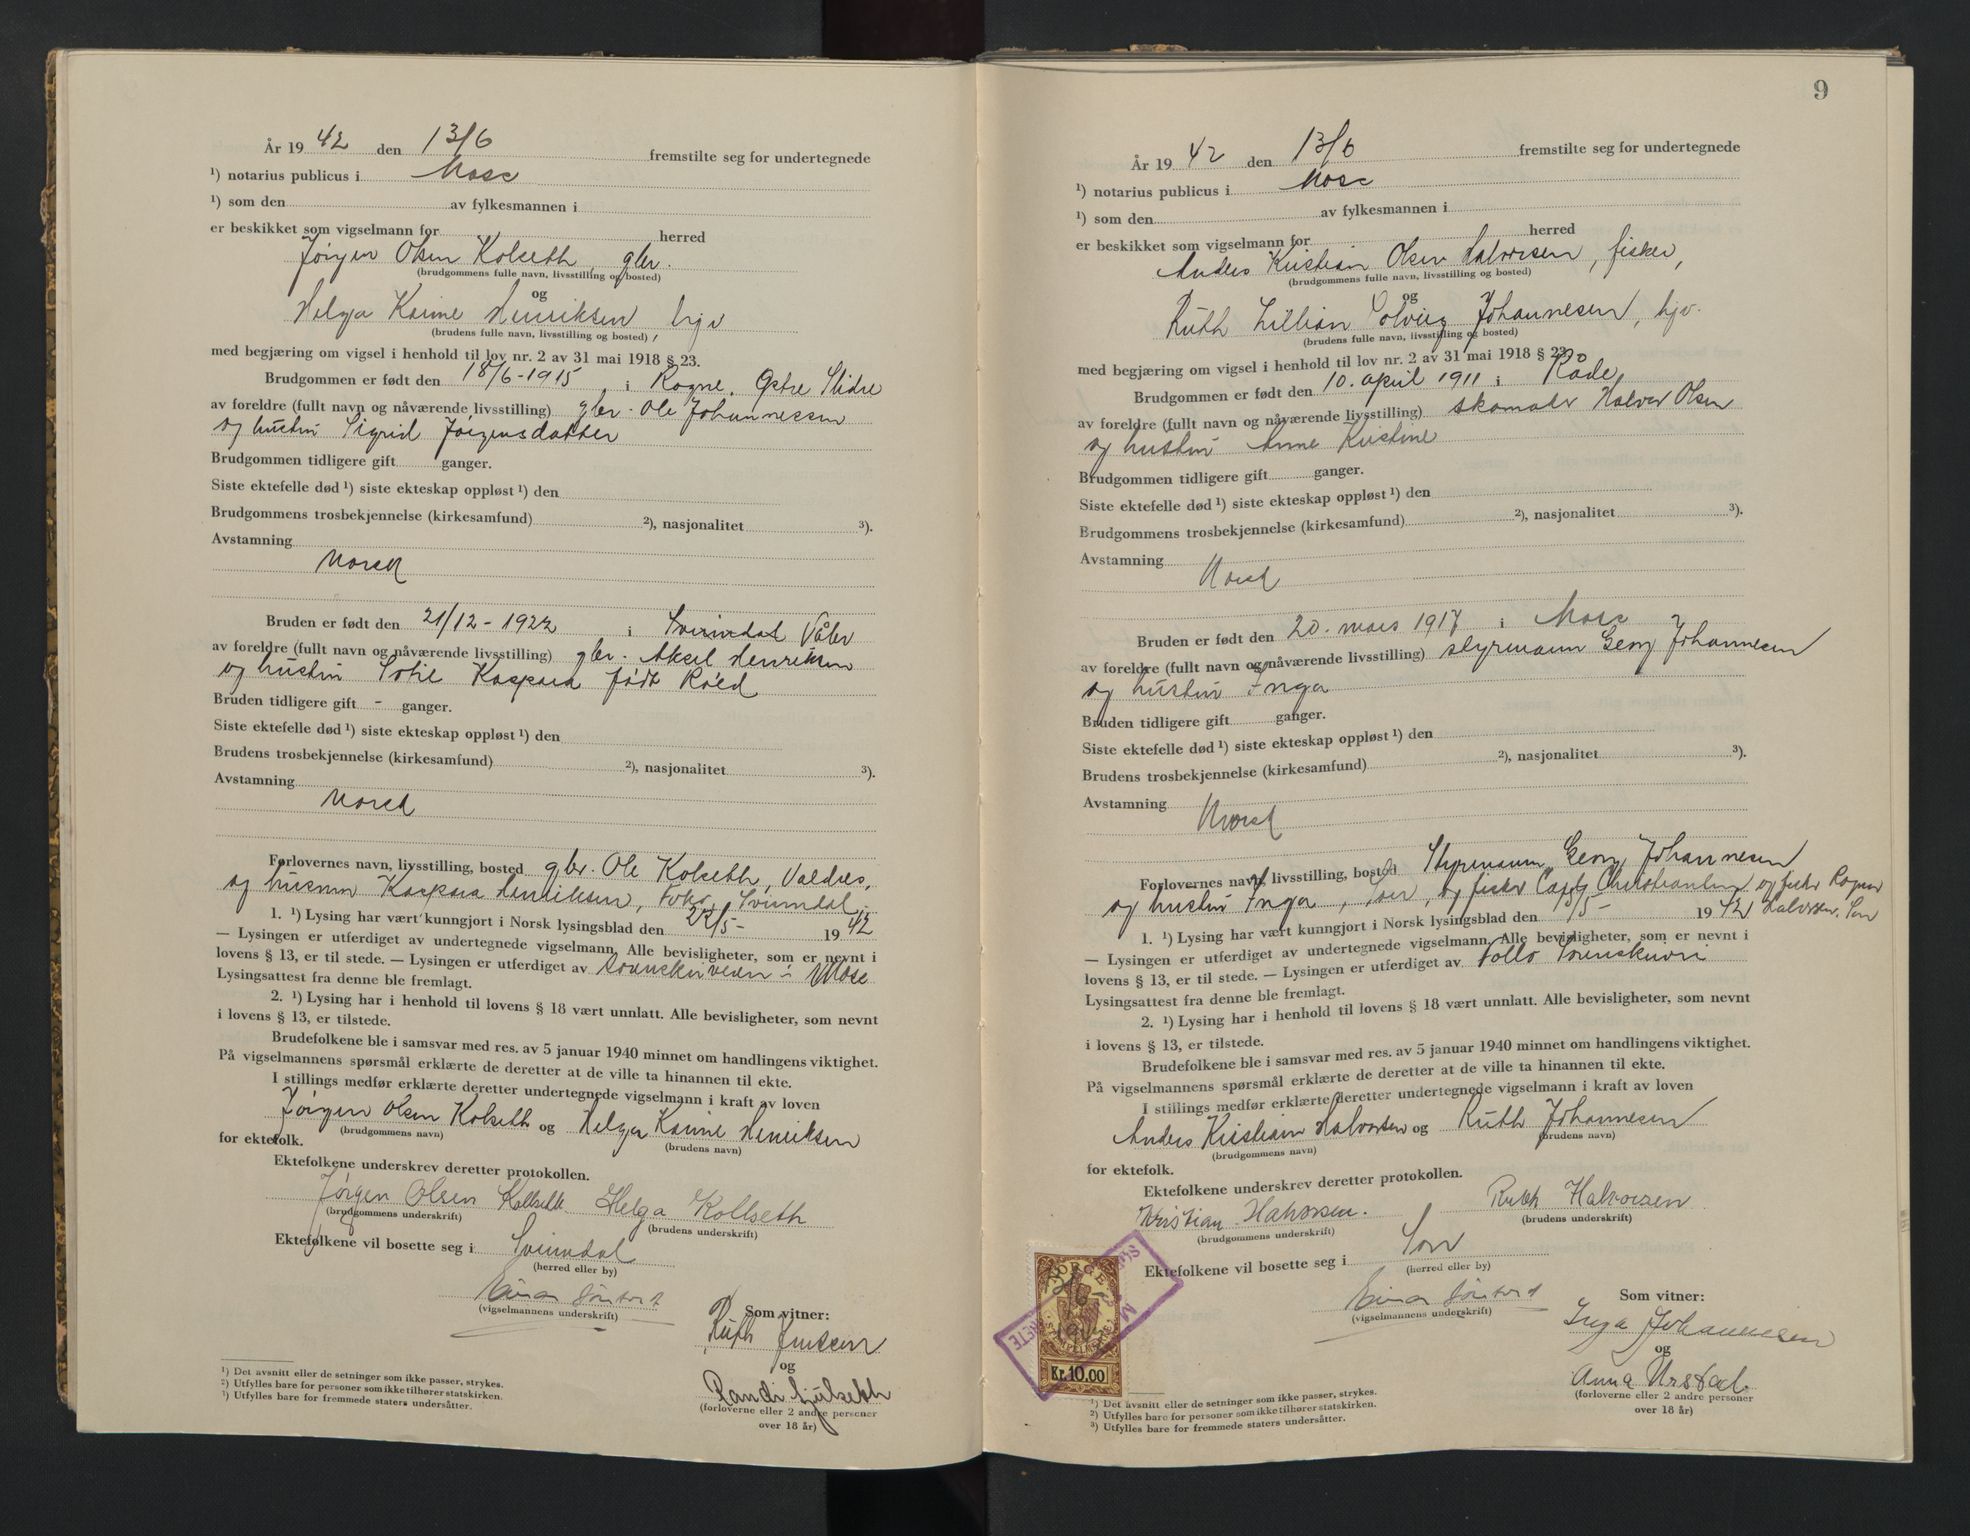 År 19 42 den 13/6 fremstilte seg for undertegnede
¹) notarius publicus i Moss
¹) som den av fylkesmannen i
er beskikket som vigselmann for herred
Jørgen Olsen Kolseth, gbr.
(brudgommens fulle navn, livsstilling og bosted)
og
Helga Karine Henriksen, hjv
(brudens fulle navn, livsstilling og bosted)
med begjæring om vigsel i henhold til lov nr. 2 av 31 mai 1918 § 23.
Brudgommen er født den 18/6-1915 i Rogne, Østre Slidre
av foreldre (fullt navn og nåværende livsstilling) gbr. Ole Johannessen
og hustru Sigrid Jørgensdatter
Brudgommen tidligere gift ganger.
Siste ektefelle død ¹) siste ekteskap oppløst ¹) den
Brudgommens trosbekjennelse (kirkesamfund) ²), nasjonalitet ³).
Avstamning
Norsk
Bruden er født den 21/12-1922 i Svinndal Våler
av foreldre (fullt navn og nåværende livsstilling) gbr. Aksel Henriksen
og hustru Sofie Kaspara født Røed
Bruden tidligere gift - ganger.
Siste ektefelle død ¹) siste ekteskap oppløst ¹) den
Brudens trosbekjennelse (kirkesamfund) ²), nasjonalitet ³).
Avstamning
Norsk
Forlovernes navn, livsstilling, bosted gbr. Ole Kolseth, Valdres,
og husmor Kaspara Henriksen, Svinndal.
1. ¹) Lysing har vært kunngjort i Norsk lysingsblad den 22/5- 19 42
— Lysingen er utferdiget av undertegnede vigselmann. Alle bevisligheter, som er nevnt i
lovens § 13, er til stede. — Lysingen er utferdiget av sorenskriveren i Moss
Lysingsattest fra denne ble fremlagt.
2. ¹) Lysing har i henhold til lovens § 18 vært unnlatt. Alle bevisligheter, som nevnt
i lovens § 13, er tilstede.
Brudefolkene ble i samsvar med res. av 5 januar 1940 minnet om handlingens viktighet.
På vigselmannens spørsmål erklærte de deretter at de ville ta hinannen til ekte.
I stillings medfør erklærte deretter undertegnede vigselmann i kraft av loven
Jørgen Olsen Kolseth og Helga Karine Henriksen
(brudgommens navn) (brudens navn)
for ektefolk.
Ektefolkene underskrev deretter protokollen.
Jørgen Olsen Kollseth Helga Kollseth
(brudgommens underskrift) (brudens underskrift)
Ektefolkene vil bosette seg i Svinndal
(herred eller by)
(vigselmannens underskrift)
Som vitner:
Ruth Jensen
og
Randi
(forloverne eller 2 andre personer
over 18 år)
¹) Det avsnitt eller de setninger som ikke passer, strykes.
²) Utfylles bare for personer som ikke tilhører statskirken.
³) Utfylles bare for fremmede staters undersåtter.
9
År 19 42 den 13/6 fremstilte seg for undertegnede
¹) notarius publicus i Moss
¹) som den av fylkesmannen i
er beskikket som vigselmann for herred
Anders Kristian Olsen Halvorsen, fisker,
(brudgommens fulle navn, livsstilling og bosted)
og
Ruth Lillian Solveig Johannesen, hjv.
(brudens fulle navn, livsstilling og bosted)
med begjæring om vigsel i henhold til lov nr. 2 av 31 mai 1918 § 23.
Brudgommen er født den 10. april 1911 i Råde
av foreldre (fullt navn og nåværende livsstilling) skomaker Halvor Olsen
og hustru Anne Kristine
Brudgommen tidligere gift ganger.
Siste ektefelle død ¹) siste ekteskap oppløst ¹) den
Brudgommens trosbekjennelse (kirkesamfund) ²), nasjonalitet ³).
Avstamning
Norsk
Bruden er født den 20. mars 1917 i Moss
av foreldre (fullt navn og nåværende livsstilling) styrmann Georg Johannesen
og hustru Inga
Bruden tidligere gift ganger.
Siste ektefelle død ¹) siste ekteskap oppløst ¹) den
Brudens trosbekjennelse (kirkesamfund) ²), nasjonalitet ³).
Avstamning
Norsk
Forlovernes navn, livsstilling, bosted Styrmann Georg Johannesen
og hustru Inga, Son, og fisker Christiansen og fisker Ragnar
Halvorsen, Son
1. ¹) Lysing har vært kunngjort i Norsk lysingsblad den /5- 19 42
— Lysingen er utferdiget av undertegnede vigselmann. Alle bevisligheter, som er nevnt i
lovens § 13, er til stede. — Lysingen er utferdiget av Follo sorenskriveri
Lysingsattest fra denne ble fremlagt.
2. ¹) Lysing har i henhold til lovens § 18 vært unnlatt. Alle bevisligheter, som nevnt
i lovens § 13, er tilstede.
Brudefolkene ble i samsvar med res. av 5 januar 1940 minnet om handlingens viktighet.
På vigselmannens spørsmål erklærte de deretter at de ville ta hinannen til ekte.
I stillings medfør erklærte deretter undertegnede vigselmann i kraft av loven
Anders Kristian Halvorsen og Ruth Johannesen
(brudgommens navn) (brudens navn)
for ektefolk.
Ektefolkene underskrev deretter protokollen.
Kristian Halvorsen. Ruth Halvorsen
(brudgommens underskrift) (brudens underskrift)
Ektefolkene vil bosette seg i Son
(herred eller by)
(vigselmannens underskrift)
Som vitner:
Inga Johannesen
og
Anna Urstad.
(forloverne eller 2 andre personer
over 18 år)
NORGE
STEMPELMERKE
Kr. 10.00
¹) Det avsnitt eller de setninger som ikke passer, strykes.
²) Utfylles bare for personer som ikke tilhører statskirken.
³) Utfylles bare for fremmede staters undersåtter.